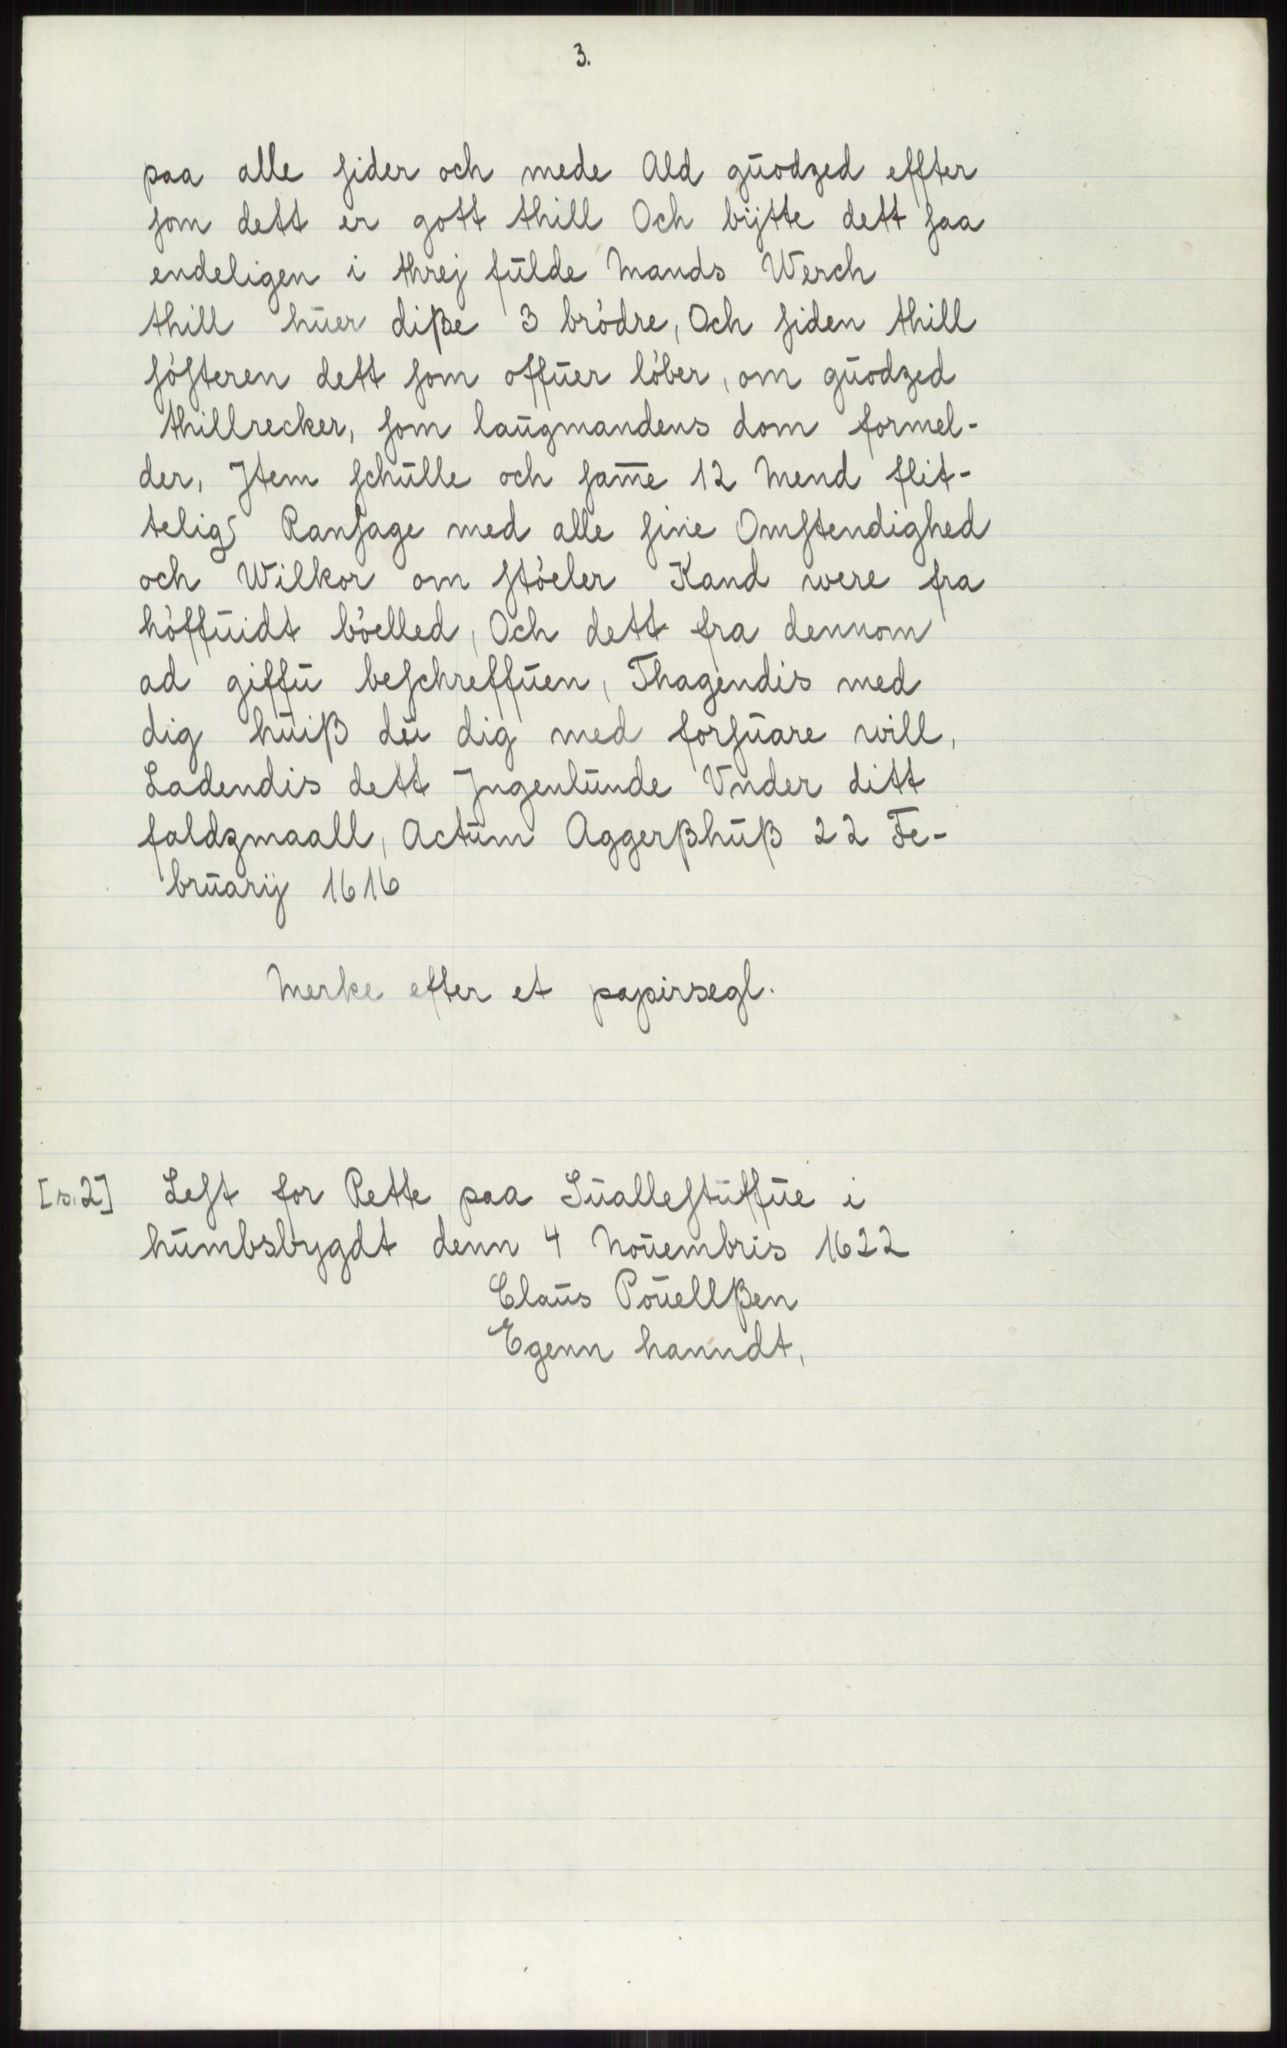 3.
paa alle ſider och mede Ald gūodzed effter
ſom dett er gott thill Och bijtte dett ſaa
endeligen i threj fūlde Mands Werch
thill hūer diße 3 brødre, Och ſiden thill
ſøſteren dett ſom offūer løber, om gūodzed
thillrecker, ſom laūgmandens dom formel-
der, Jtem ſchūlle och ſam̅e 12 Mend flit-
telig Ranſage med alle ſine Omſtendighed
och Wilkor om ſtøeler Kand were fra
høffūidt bøelled, Och dett fra dennom
ad giffū beſchreffūen, Thagendis med
dig hūiß dū dig med forſūare will,
Ladendis dett Jngenlūnde Vnder ditt
faldzmaall, Actūm Aggerßhūß 22 Fe-
brūarij 1616
Merke efter et papirsegl.
[s.2] Leſt for Rette paa Sūalleſtūffūe i
hūmbsbygdt denn 4 Noūembris 1622
Claūs Poūellßen
Egenn hanndt,